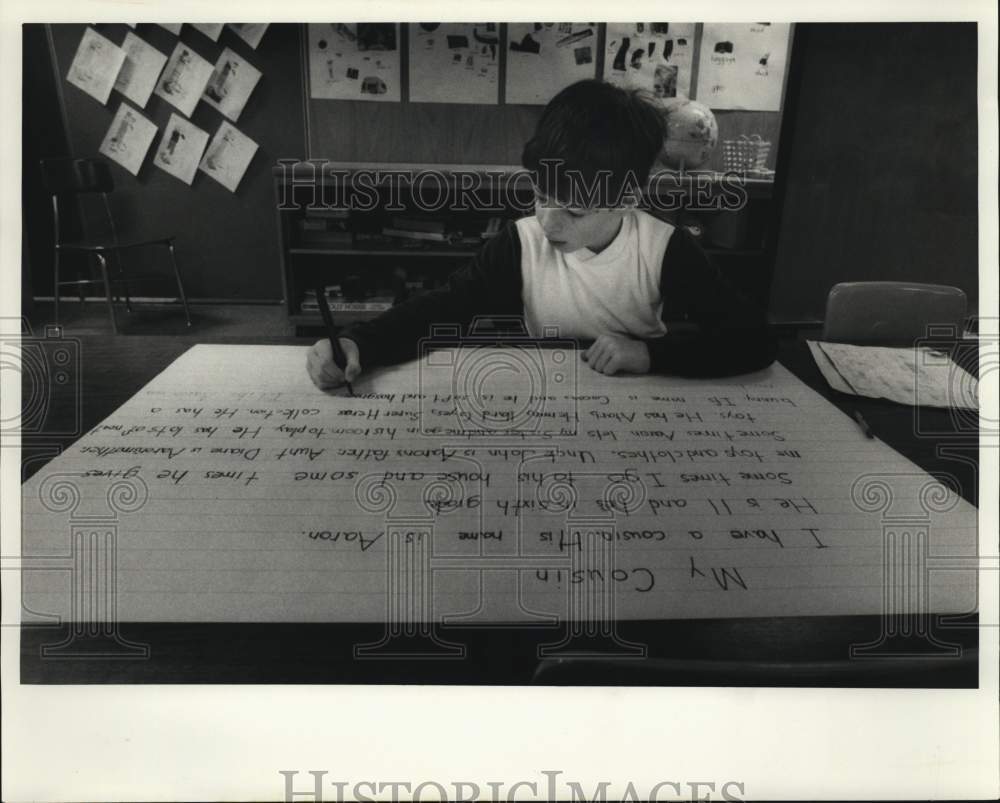 My Cousin
I have a cousin. His name is Aaron.
He is 11 and his in sixth grade
Some times I go to his house and some times he gives
me toys and clothes. Uncle John is Aarons father. Aunt Diane is Aarons mother.
Some times Aaron lets my Sister and me go in his room to play. He has lots of
toys. He has Atari, He man, Super Heros colktion. He has a
bunny. It's name is Cocoa and he is soft and
HISTORIC IMAGES
HISTORIC IMAGES